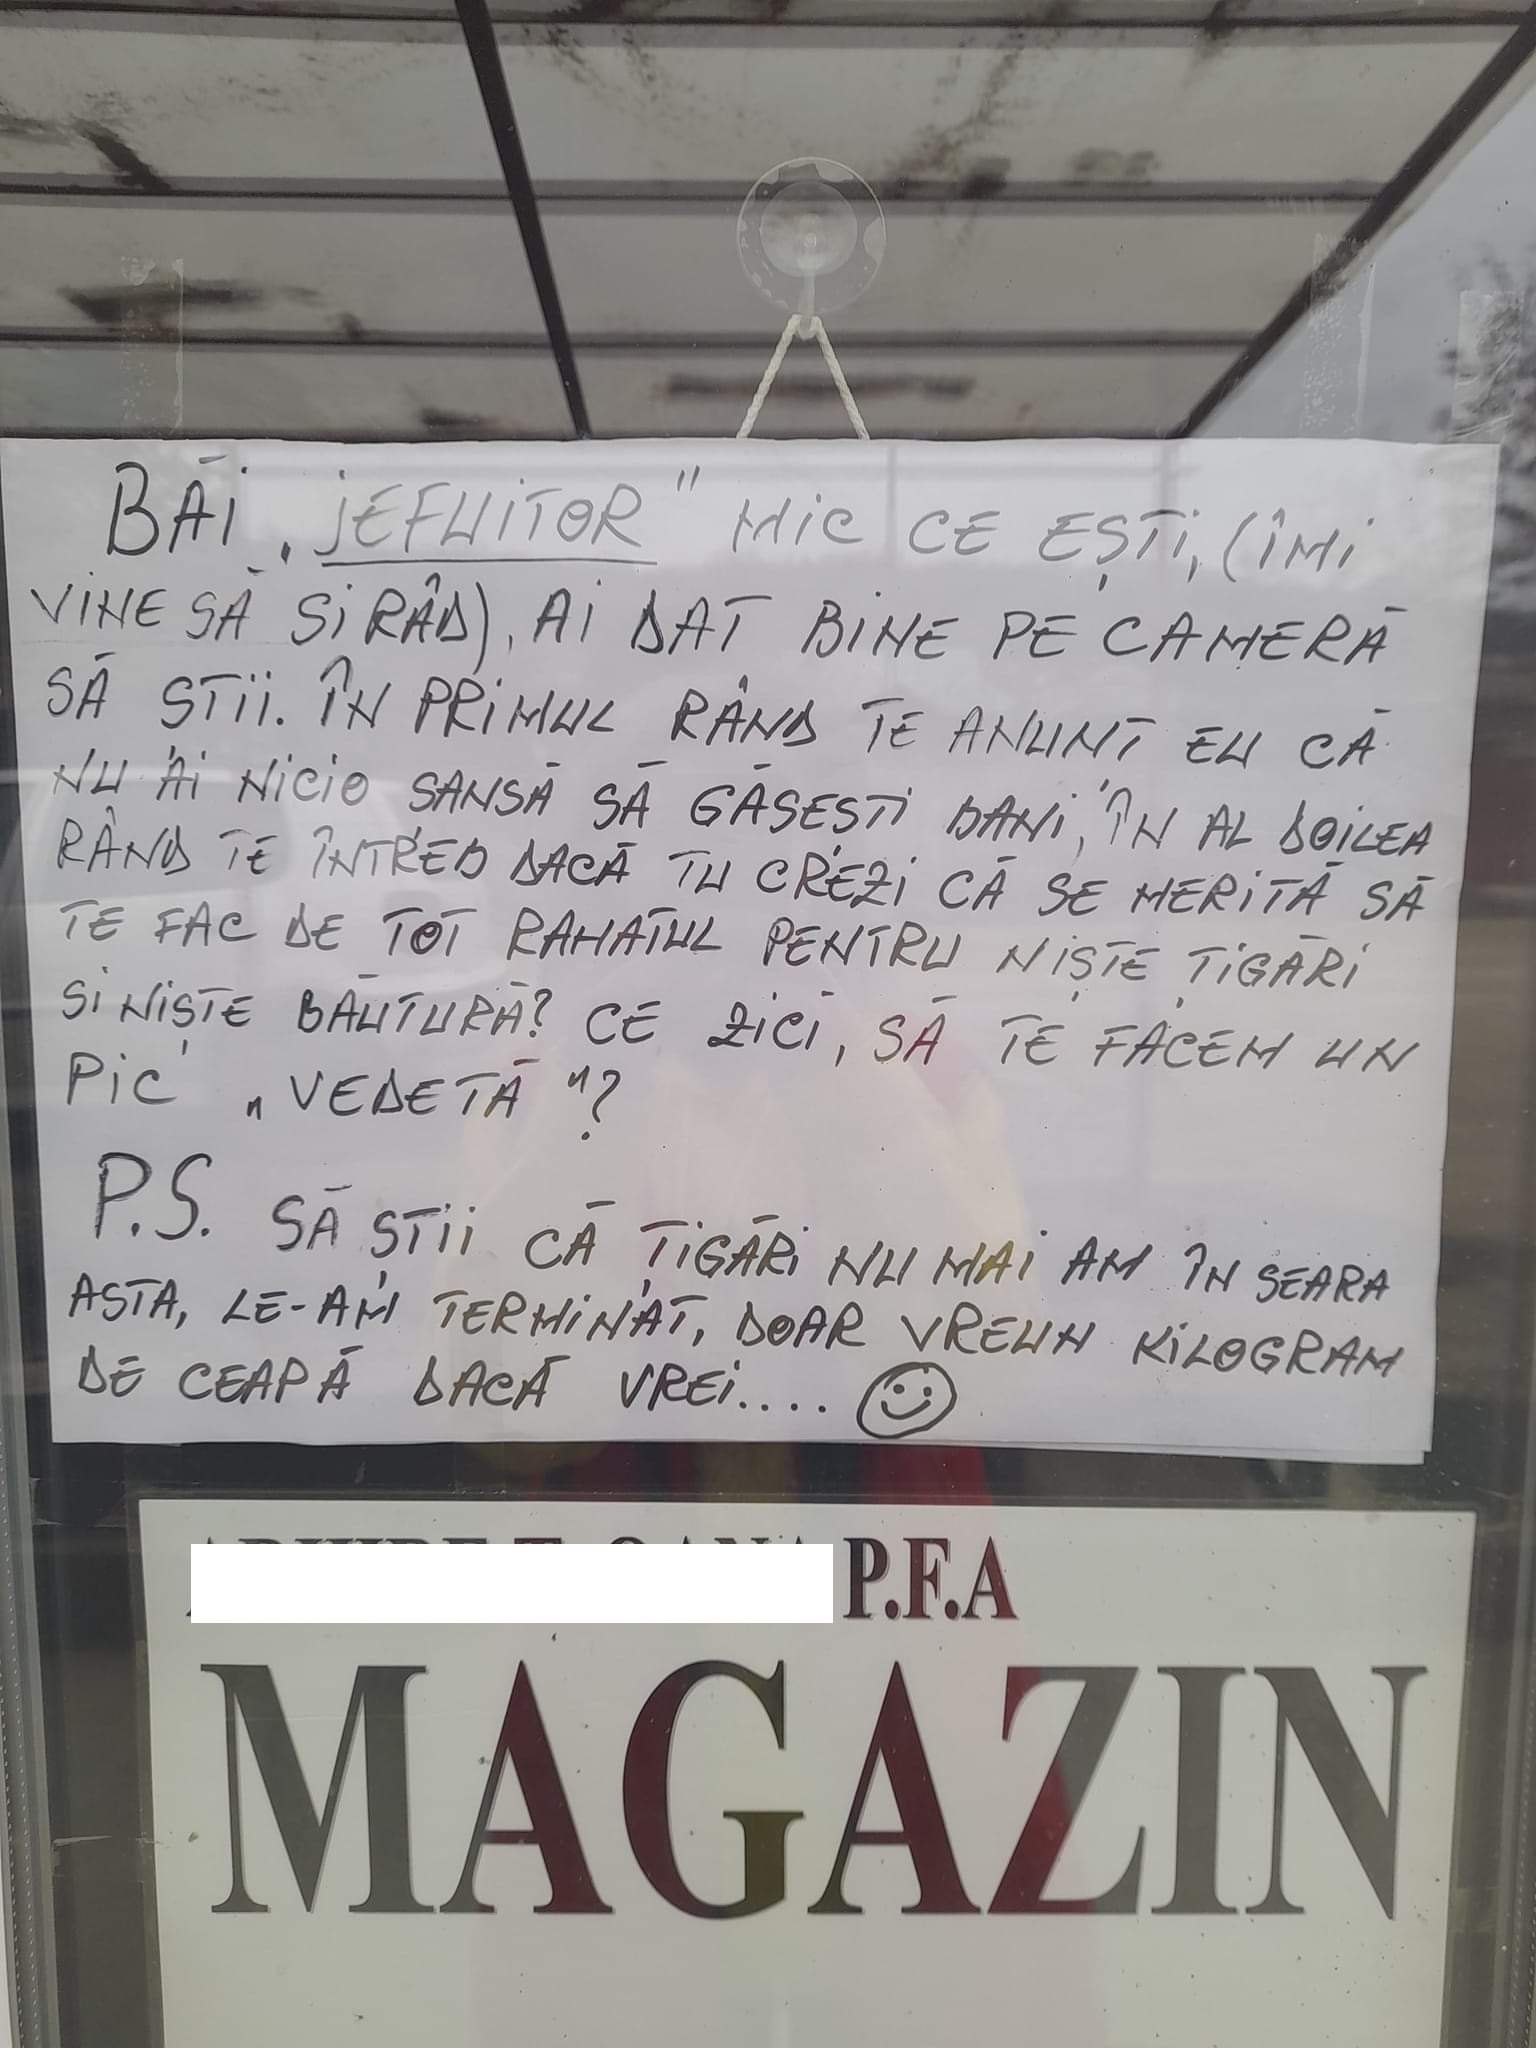 BĂI „JEFUITOR" MIC CE EȘTI, (ÎMI
VINE SĂ SI RÂD), AI DAT BINE PE CAMERĂ
SĂ STII. ÎN PRIMUL RÂND TE ANUNT EU CĂ
NU AI NICIO SANSĂ SĂ GĂSEȘTI BANI, ÎN AL DOILEA
RÂND TE ÎNTREB DACĂ TU CREZI CĂ SE MERITĂ SĂ
TE FAC DE TOT RAHATUL PENTRU NIȘTE TIGĂRI
SI NIȘTE BĂUTURĂ? CE ZICI, SĂ TE FACEM UN
PIC „VEDETĂ"?
P.S. SĂ ȘTII CĂ ȚIGĂRI NU MAI AM ÎN SEARA
ASTA, LE-AM TERMINAT, DOAR VREUN KILOGRAM
DE CEAPĂ DACĂ VREI....
P.F.A
MAGAZIN